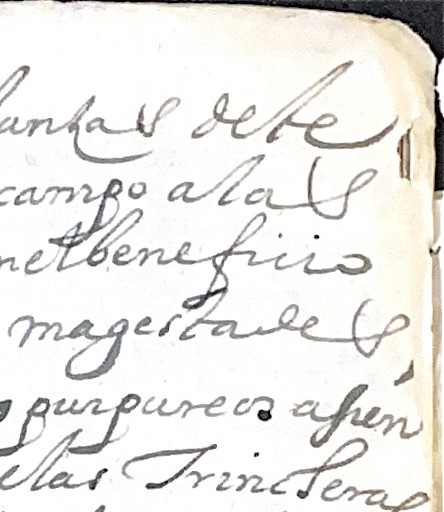 lantas debe
campo a las
n el beneficio
magestades,
purpureos assien
elas Trincheras